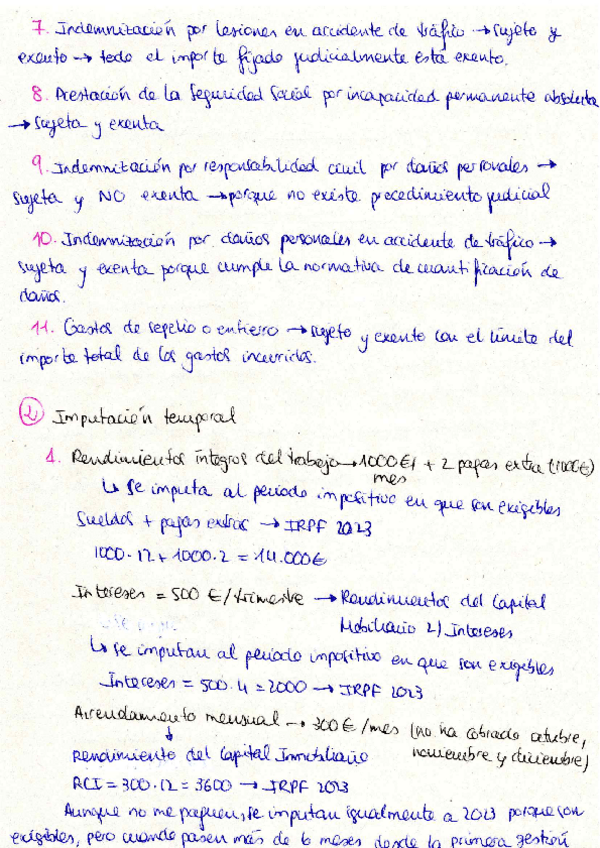 7. Indemnización por lesiones en accidente de tráfico → sujeto y
exento → todo el importe fijado judicialmente está exento.
8. Prestación de la Seguridad Social por incapacidad permanente absoluta
→ sujeta y exenta
9. Indemnización por responsabilidad civil por daños personales →
sujeta y NO exenta → porque no existe procedimiento judicial
10. Indemnización por daños personales en accidente de tráfico →
sujeta y exenta porque cumple la normativa de cuantificación de
daños.
11. Gastos de sepelio o entierro → sujeto y exento con el límite del
importe total de los gastos incurridos.
② Imputación temporal
1. Rendimientos íntegros del trabajo → 1000€/ + 2 pagas extra (1000€)
mes
↳ se imputa al periodo impositivo en que son exigibles
Sueldos + pagas extras → IRPF 2023
1000·12 + 1000·2 = 14.000€
Intereses = 500 €/trimestre → Rendimientos del Capital
Mobiliario 2) Intereses
↳ se imputan al periodo impositivo en que son exigibles
Intereses = 500·4 = 2000 → IRPF 2023
Arrendamiento mensual → 300€/mes (no ha cobrado octubre,
noviembre y diciembre)
↓
Rendimiento del Capital Inmobiliario
RCI = 300·12 = 3600 → IRPF 2023
Aunque no me paguen, se imputan igualmente a 2023 porque son
exigibles, pero cuando pasen más de 6 meses desde la primera gestión